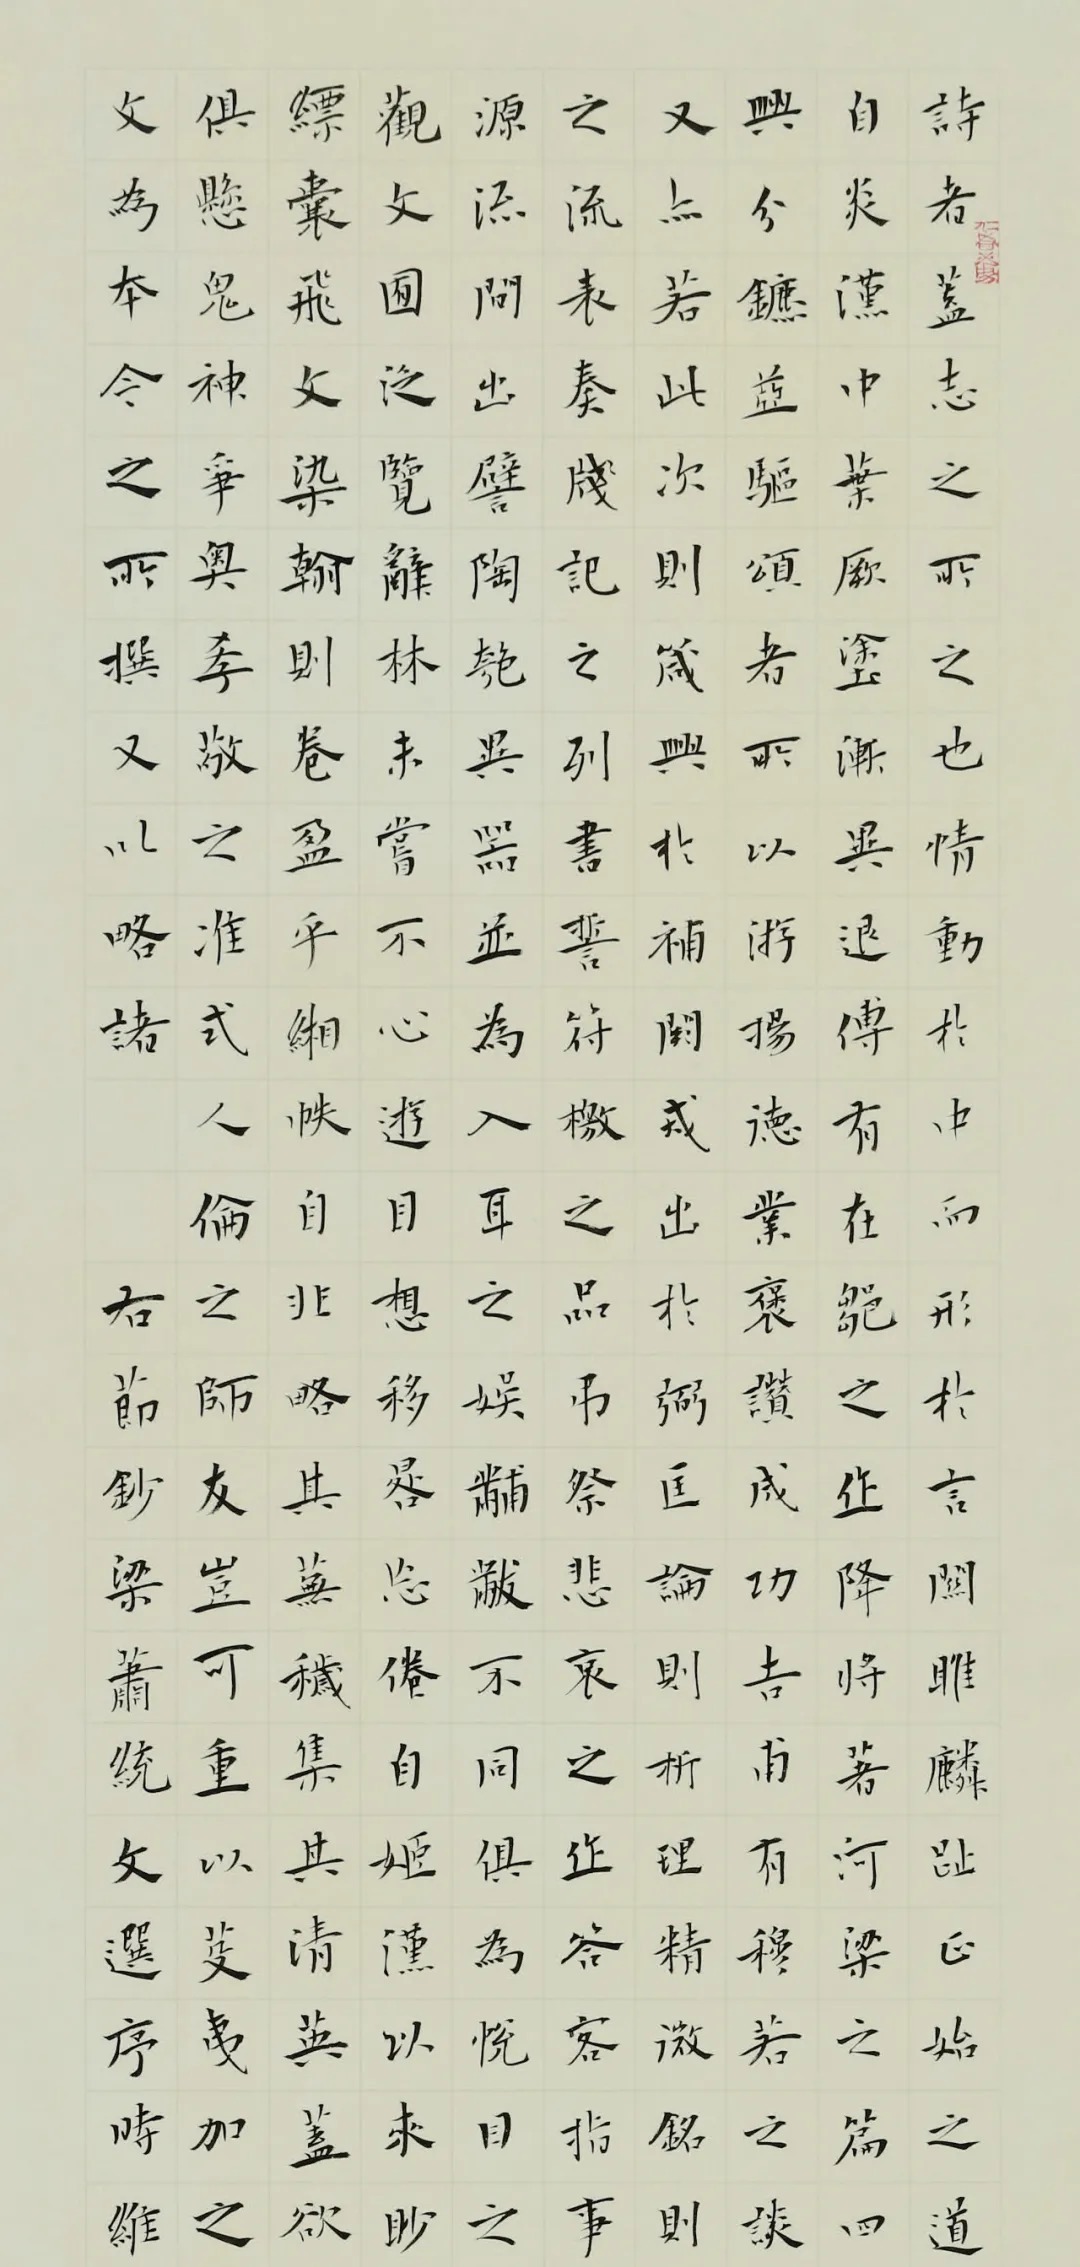 詩者蓋志之所之也情動於中而形於言關雎麟趾正始之道
自炎漢中葉厥塗漸異退傅有在鄒之作降將著河梁之篇四
興分鑣並驅頌者所以游揚德業褒讚成功吉甫有穆若之談
又亦若此次則箴興於補闕戒出於弼匡論則析理精微銘則
之流表奏牋記之列書誓符檄之品弔祭悲哀之作答客指事
源流間出譬陶匏異器並為入耳之娛黼黻不同俱為悅目之
觀文囿泛覽辭林未嘗不心遊目想移晷忘倦自姬漢以來眇
縹囊飛文染翰則卷盈乎緗帙自非略其蕪穢集其清英蓋欲
俱懸鬼神爭奧孝敬之准式人倫之師友豈可重以芟夷加之
文為本今之所撰又以略諸 右節鈔梁蕭統文選序時維